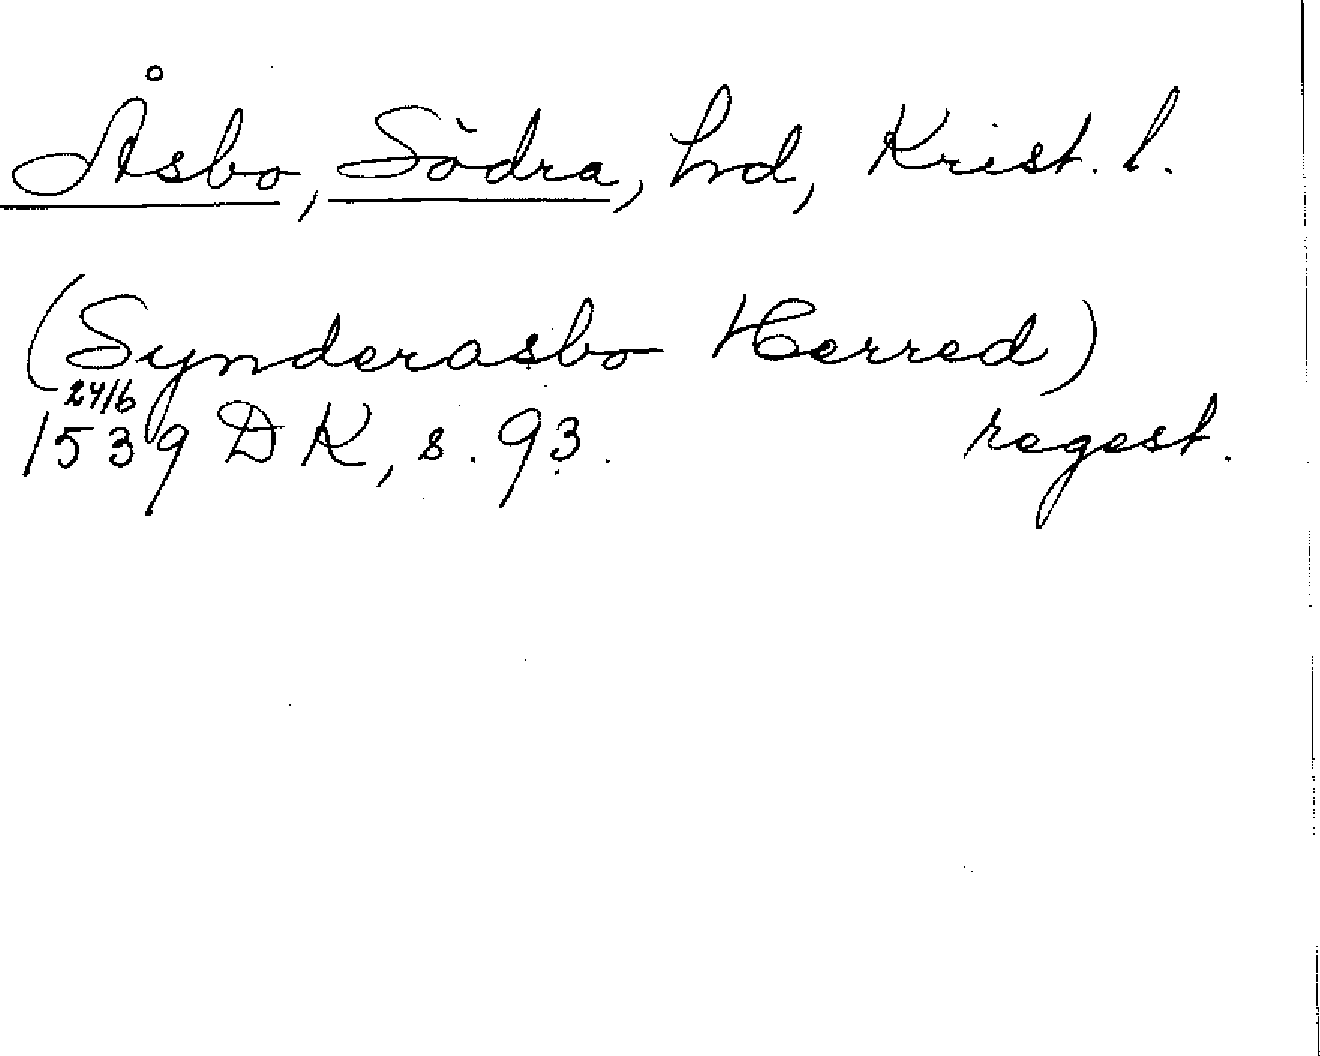 Åsbo, Södra, hd, Krist. l.
(Synderasbo Herred)
24/6
1539 DK, s. 93. regest.